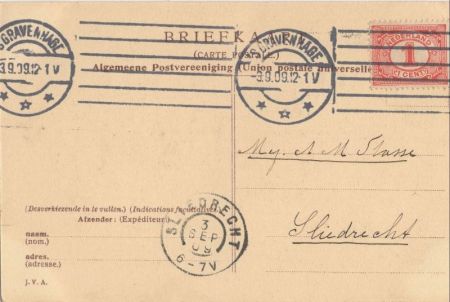 BRIEFKA
(CARTE PO
Algemeene Postvereeniging (Union postale universelle
'S GRAVENHAGE
3.9.09.12-1V
'S GRAVENHAGE
3.9.09.12-1V
NEDERLAND
1
CENT
Mej. A M
Sliedrecht
(Desverkiezende in te vullen.) (Indications facultatives.)
Afzender: (Expéditeur)
naam.
(nom.)
adres.
(adresse.)
J. V. A.
SLIEDRECHT
3
SEP
09
6-7V